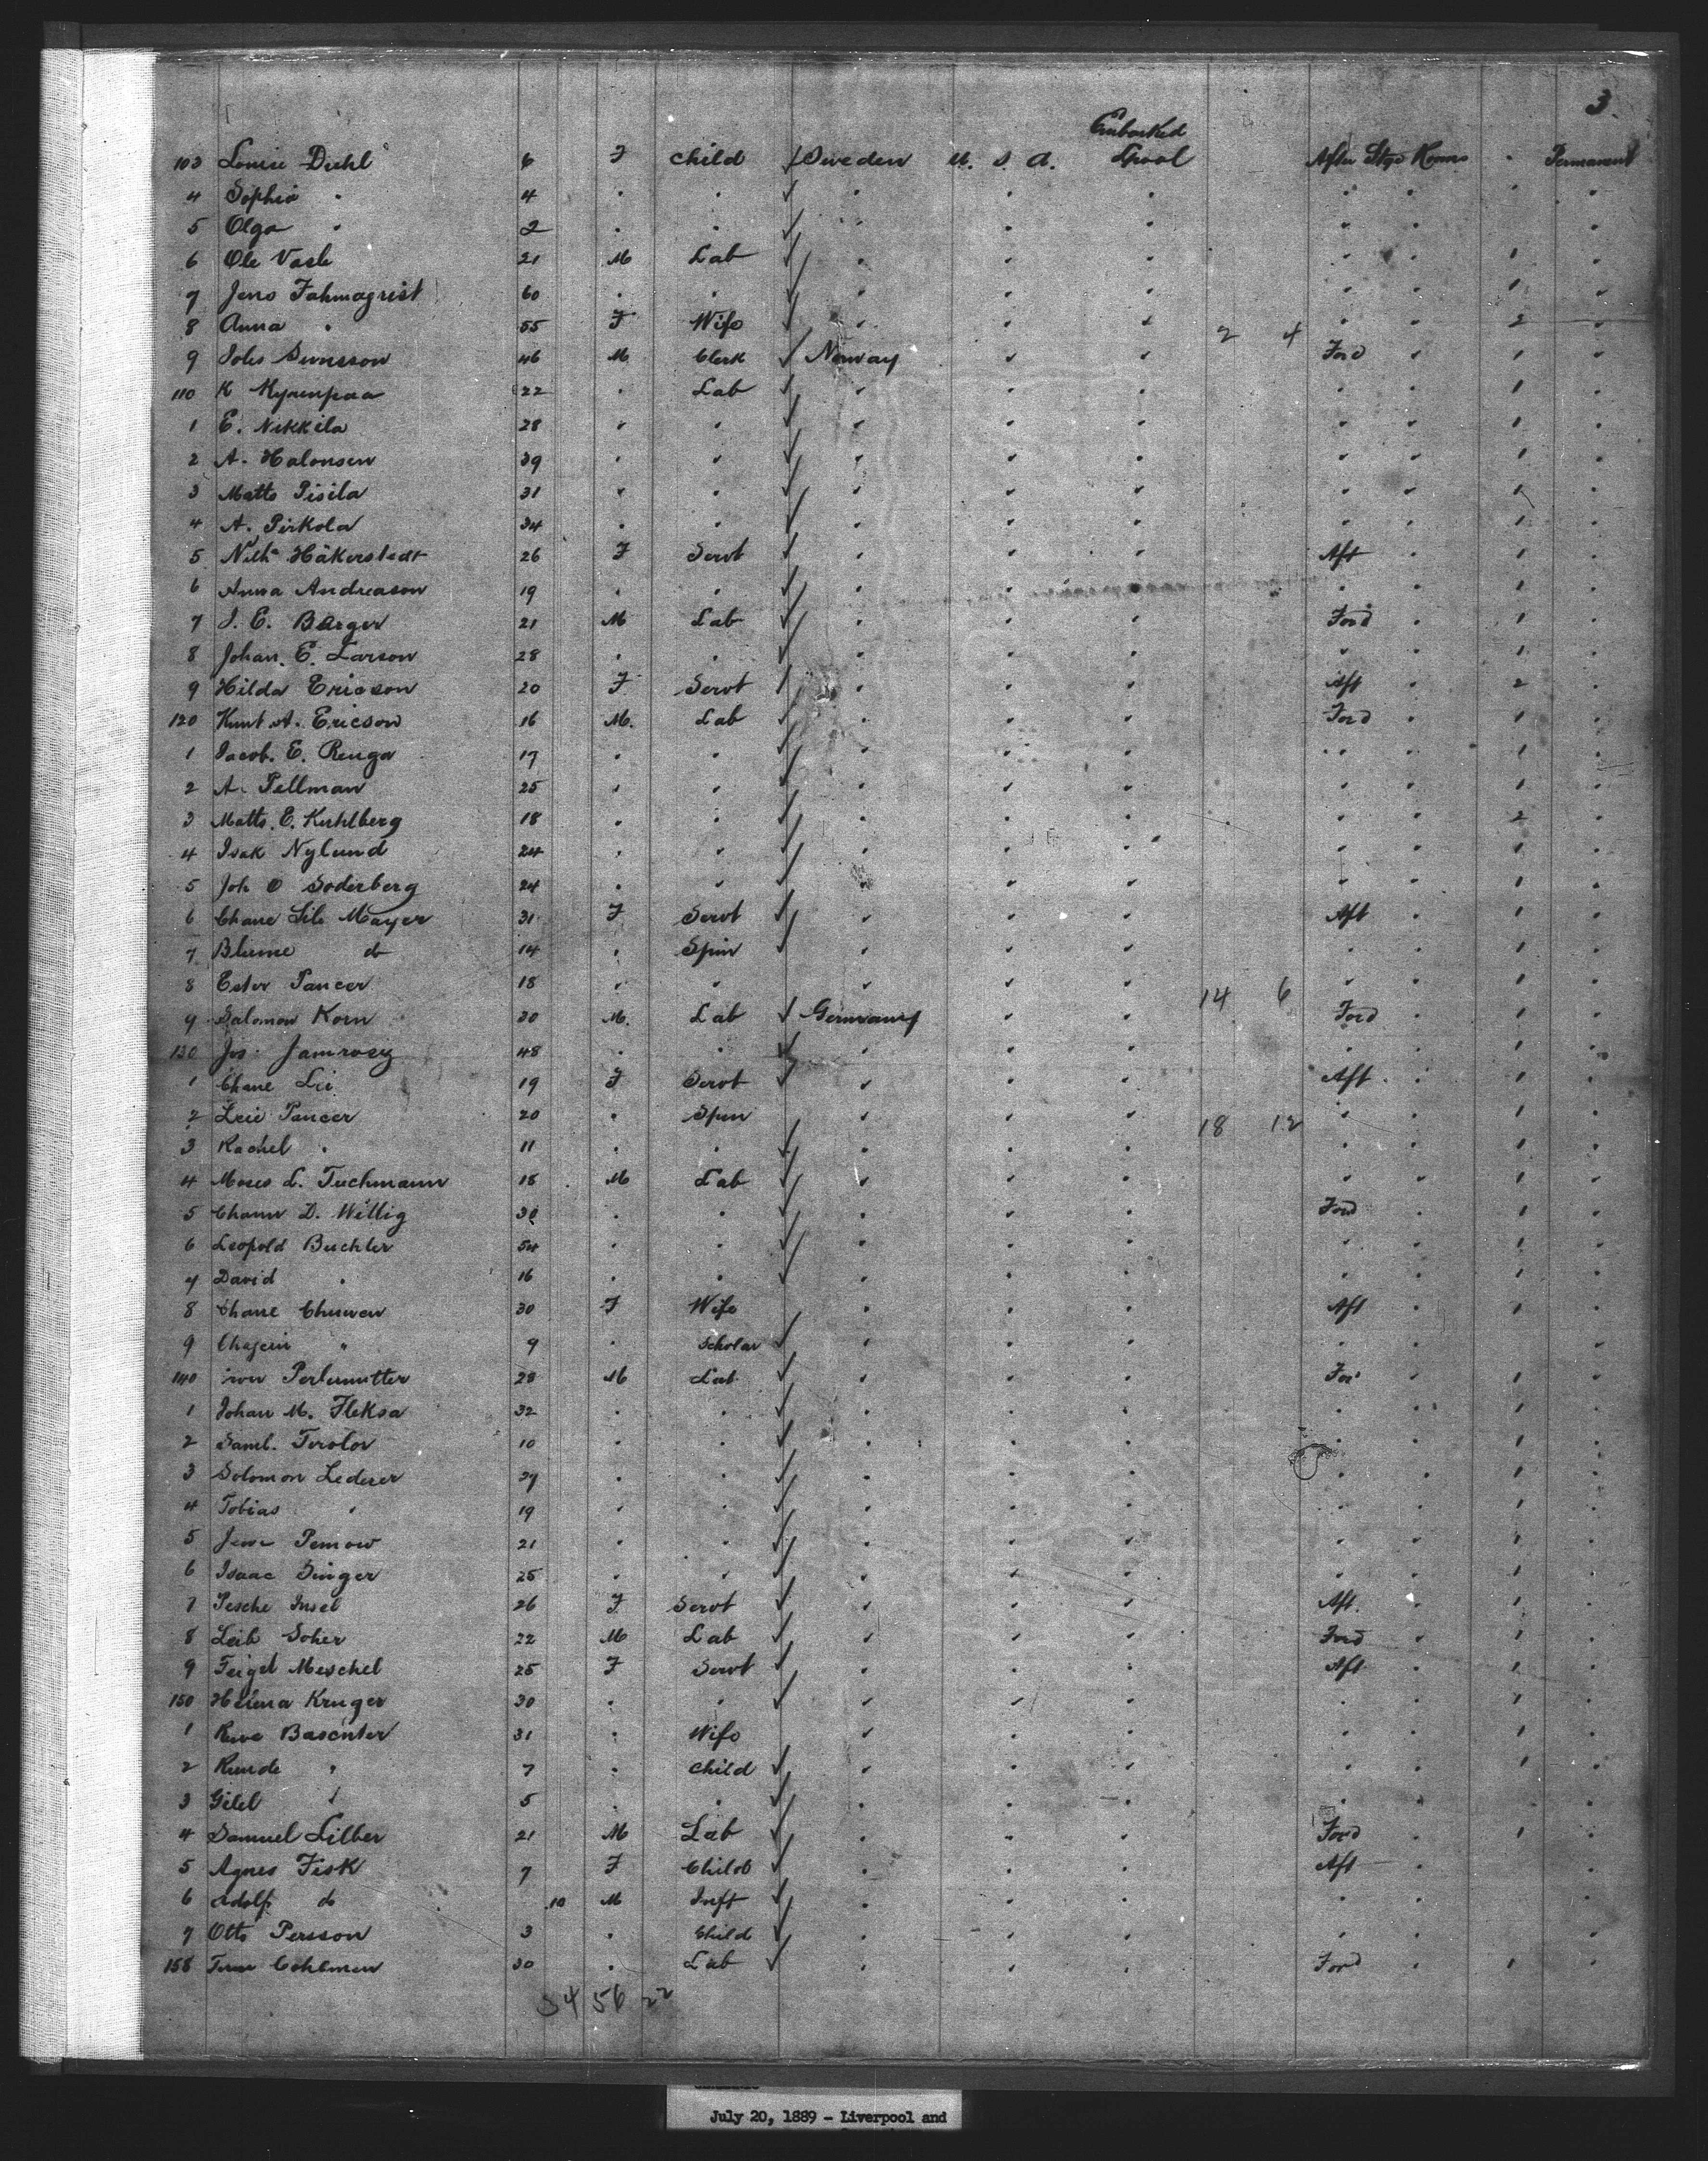 3
Embarked
103 Louise Diehl 6 F child Sweden U. S. A. Lpool After Stge Rooms Permanent
4 Sophia " 4
5 Olga " 2
6 Ole Vasli 21 M Lab 1
7 Jens Fahmagrist 60 1
8 Anna " 55 F Wife 2 4 2
9 Johs Swensson 46 M Clerk Norway Ford 1
110 K Kyrenpaa 22 Lab 1
1 E. Nikkila 28 1
2 A. Halonsen 39 1
3 Matts Pisila 31 1
4 A. Pirkola 34 1
5 Håkerstedt 26 F Servt Aft 1
6 Anna Andreason 19 1
7 J. E. Barger 21 M Lab Ford 1
8 Johan. E. Larson 28 1
9 Hilda Ericson 20 F Servt Aft 2
120 Knut A. Ericson 16 M. Lab Ford 1
1 Jacob. E. Renga 17 1
2 A. Pellman 25 1
3 Matts. E. Kuhlberg 18 2
4 Isak Nylund 24 1
5 Joh O Soderberg 24 1
6 Chane Lib Mayer 31 F Servt Aft 1
7 Blume do 14 Spin 1
8 Ester Pancer 18 14 6 1
9 Salomon Korn 30 M. Lab Germany Ford 1
130 Jos. Jamrosy 48 1
1 Chane Lei 19 F Servt Aft 1
2 Leie Pancer 20 Spin 18 12 1
3 Rachel " 11 1
4 Moses L. Tuchmann 18 M Lab 1
5 D. Willig 30 Ford 1
6 Leopold Buchler 54 1
7 David " 16 1
8 Chane Chuwen 30 F Wife Aft 1
9 Chajein " 9 Scholar
140 Perlemutter 28 M Lab For 1
1 Johan M. Fleksa 32 1
2 Saml. Terolov 10 1
3 Solomon Lederer 27 1
4 Tobias " 19 1
5 Pemow 21 1
6 Isaac Singer 25 1
7 Pesche Insel 26 F Servt Aft. 1
8 Leib Soher 22 M Lab Ford 1
9 Feigel Meschel 25 F Servt Aft 1
150 Helena Kruger 30 1
1 Basenter 31 Wife 1
2 Runde " 7 child 1
3 Gitel " 5
4 Samuel Lilber 21 M Lab Ford 1
5 Agnes Fisk 7 F Child Aft
6 Adolf do 10 M Inft
7 Otto Persson 3 Child
158 Cohemen 30 Lab Ford 1
34 56 22
July 20, 1889 - Liverpool and